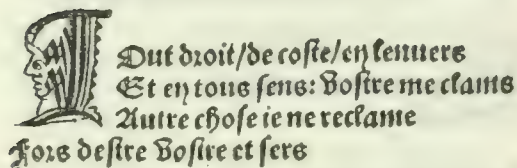 Tout droit/de coste/en lenuers
Et en tous sens: Vostre me clams
Autre chose ie ne reclame
Fors destre Vostre et sers